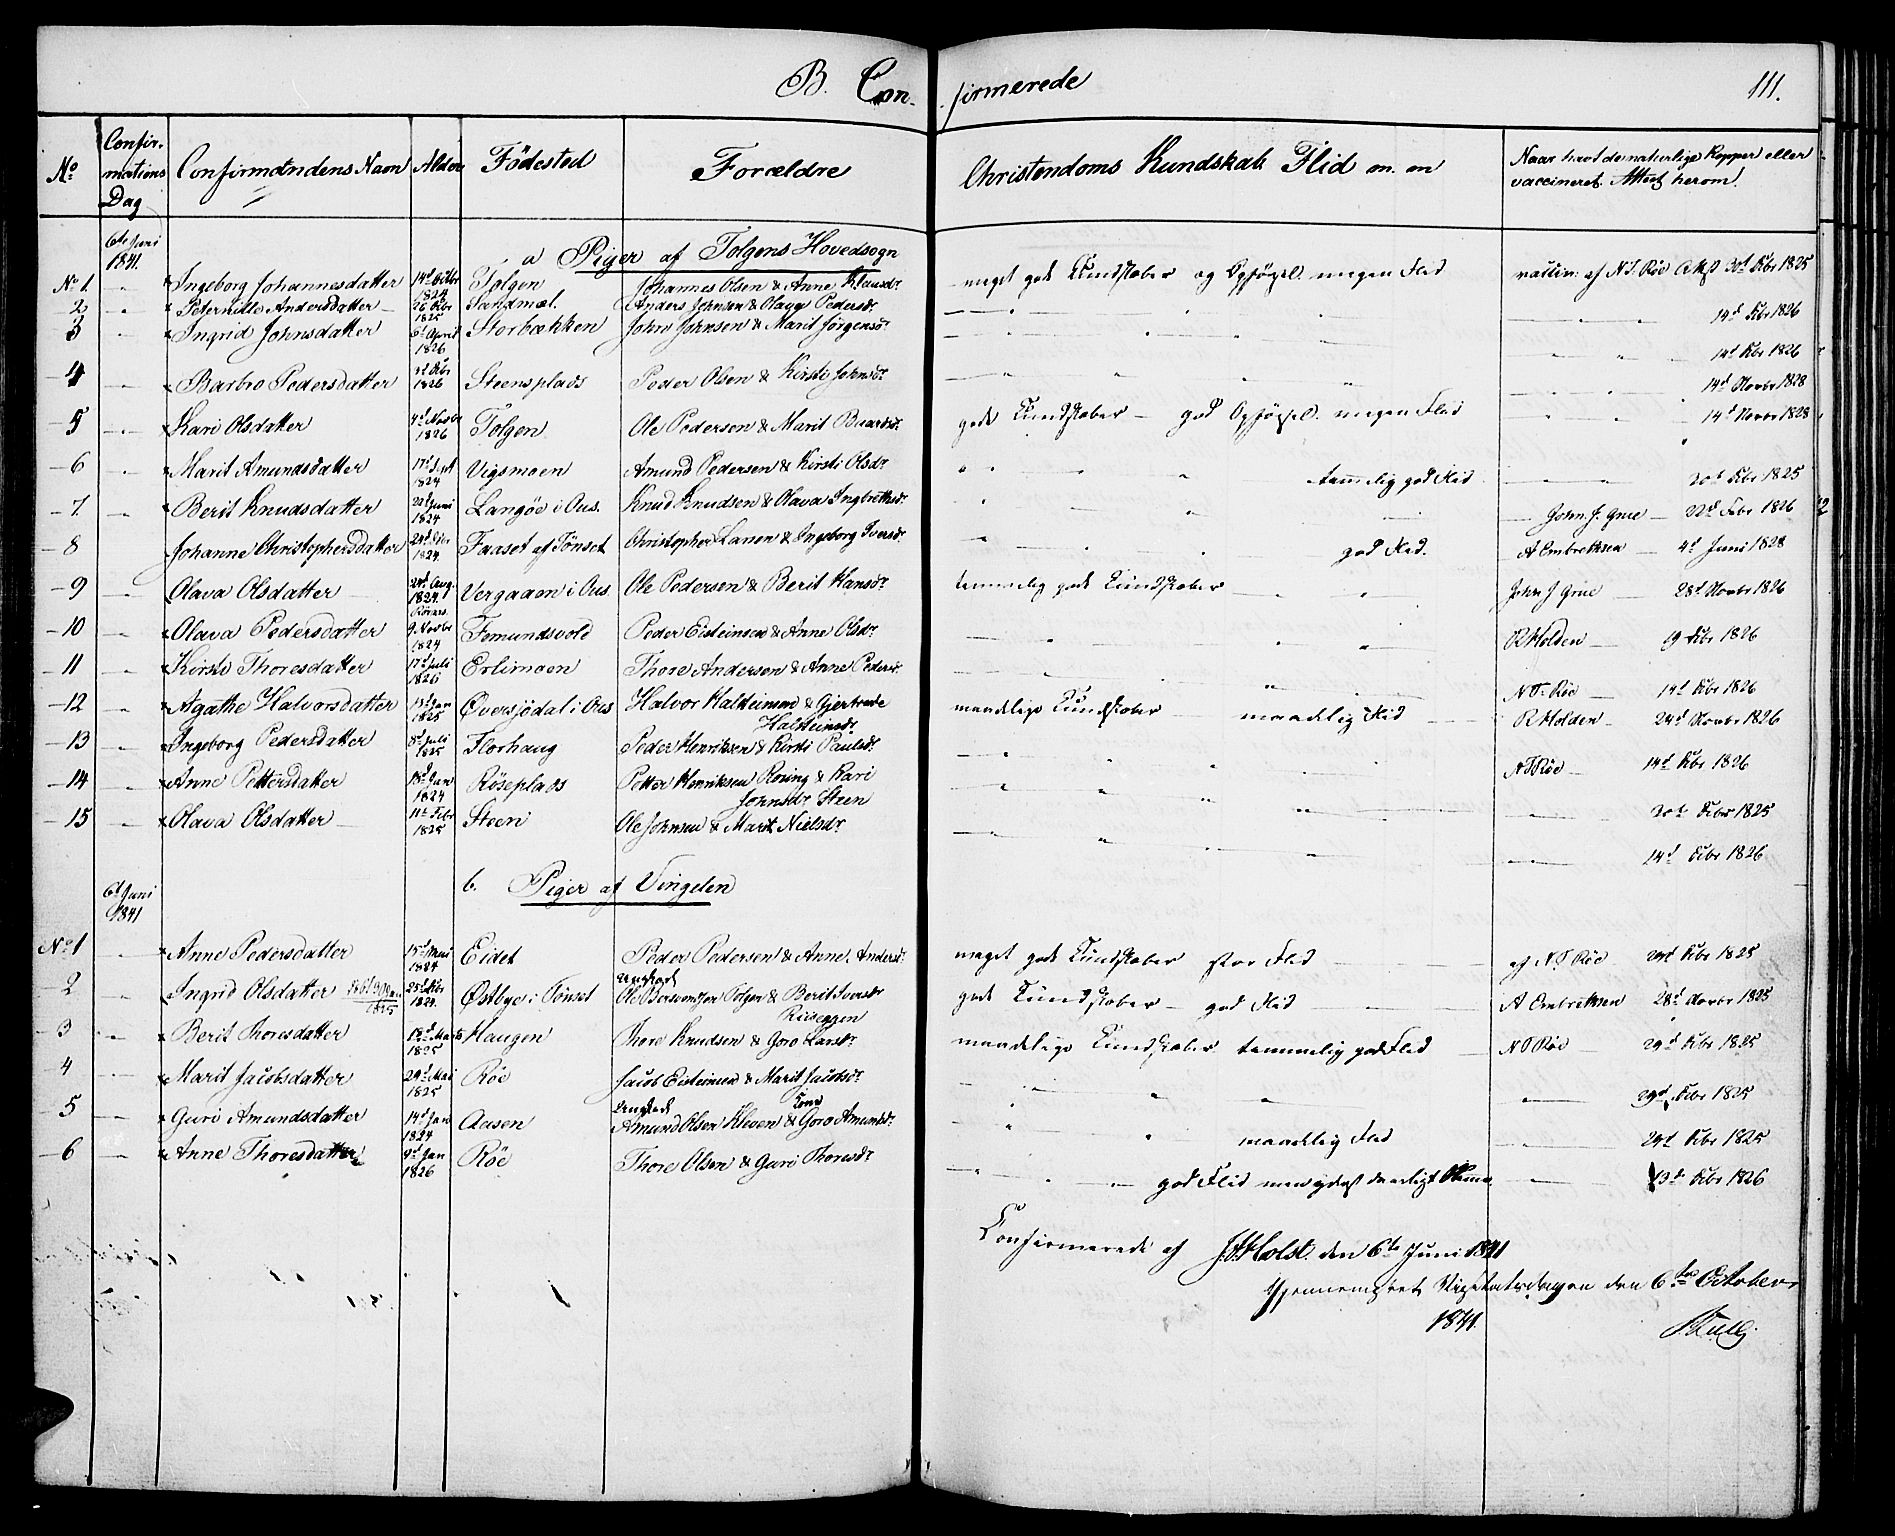 B. Con- firmerede
111.
No Confir-mations Dag Confirmandens Navn Alder Födested Forældre Christendoms Kundskab Flid m. m Naar havt de naturlige Kopper eller vaccineret. Attest herom.
6te Juni 1841.
a Piger af Tolgens Hovedsogn
No 1 " Ingeborg Johannesdatter 14d Octbr 1824 Tolgen Johannes Olsen & Anne Klausdr meget gode Kundskaber og Opførsel. megen Flid vaccin: af N. T. Röe Attest 30d Octbr 1825
2 " Peternille Andersdatter 1825 Sandmæl. Anders Johnsen & Olava Pedersdr 14d Octbr 1826
3 " Ingrid Johnsdatter 6d April 1826 Storbækken John Johnsen & Marit Jörgensdr 14d Octbr 1826
4 " Barbro Pedersdatter 1826 Steensplads Peder Olsen & Kirsti Johnsdr 14d Novbr 1828
5 " Kari Olsdatter 4d Novbr 1826 Tolgen Ole Pedersen & Marit Baardsdr gode Kundskaber – god Opførsel. megen Flid 14d Novbr 1828
6 " Marit Amundsdatter 17d Sept 1824 Vigsmoen Amund Pedersen & Kirsti Olsdr temmelig god Flid 30d Octbr 1825
7 " Berit Knudsdatter 22d Juni 1824 Langöe i Ous. Knud Knudsen & Olava Ingbretsdr John. J. Grue – 22d Febr 1826
8 Johanne Christophersdatter 1824 Faaset af Tönset Christopher Larsen & Ingeborg Iversdr god Flid. A Embretksen – 4d Juni 1828
9 " Olava Olsdatter 24d Aug. 1824 Vergaaen i Ous Ole Pedersen & Berit Hansdr temmelig gode Kundskaber John J Grue – 28d Novbr 1826
10 " Olava Pedersdatter Röraas. 9 Novbr 1824 Femundsvold Peder Eisteinsen & Anne Olsdr R Holden – 19 Octbr 1826
11 " Kirsti Thoresdatter 17d Juli 1826 Erlimoen Thore Andersen & Anne Pedersdr N T. Röe – 14d Octbr 1826
12 " Agathe Halvorsdatter 15d Jan 1825 Översjödal i Ous Halvor Halsteinsen & Gjertrude Halsteinsdr maadelige Kundskaber maadelig Flid R Holden – 24d Novbr 1826
13 " Ingeborg Pedersdatter 8d Juli 1825 Florhaug Peder Henriksen & Kirsti Paulsdr N T Röe – 14d Octbr 1826
14 " Anne Pettersdatter 18d Jan 1824 Röseplads Petter Henriksen Rosing & Kari Johnsdr Steen 30d Octbr 1825
15 " Olava Olsdatter 11te Febr 1825 Steen Ole Johnsen & Marit Nielsdr 14d Octbr 1826
6d Juni 1841
b. Piger af Vingelen
No 1 " Anne Pedersdatter 15d Mai 1824 Eidet Peder Pedersen & Anne. Andersdr meget gode Kundskaber stor Flid af N. T. Röe – 29d Octbr 1825
2 Ingrid Olsdatter 1825 Östbye i Tönset Ungkarl Ole Berntsen Tolgen & Berit Iversdr Riiseggen gode Kundskaber – god Flid A Embretksen 28d Novbr 1825
3 " Berit Thoresdatter 18d Marts 1825 Haugen Thore Knudsen & Goro Larsdr maadelige Kundskaber temmelig god Flid N T Röe 29d Octbr 1825
4 Marit Jacobsdatter 29d Mai 1825 Röe Jacob Eisteinsen & Marit Jacobsdr 29d Octbr 1825
5 " Guri Amundsdatter 14d Jan 1824 Aasen Ungkarl Amund Olsen Kleven & Kone Goro Amundsdr maadelig Flid 29d Octbr 1825
6 " Anne Thoresdatter 9d Jan 1826 Röe Thore Olsen & Guri Thoresdr god Flid men yderst daarligt Nemme 13d Octbr 1826
Confirmerede af J. H. Holst. den 6te Juni 1841
Gjennemseet Visitatsdagen den 6te October
1841.